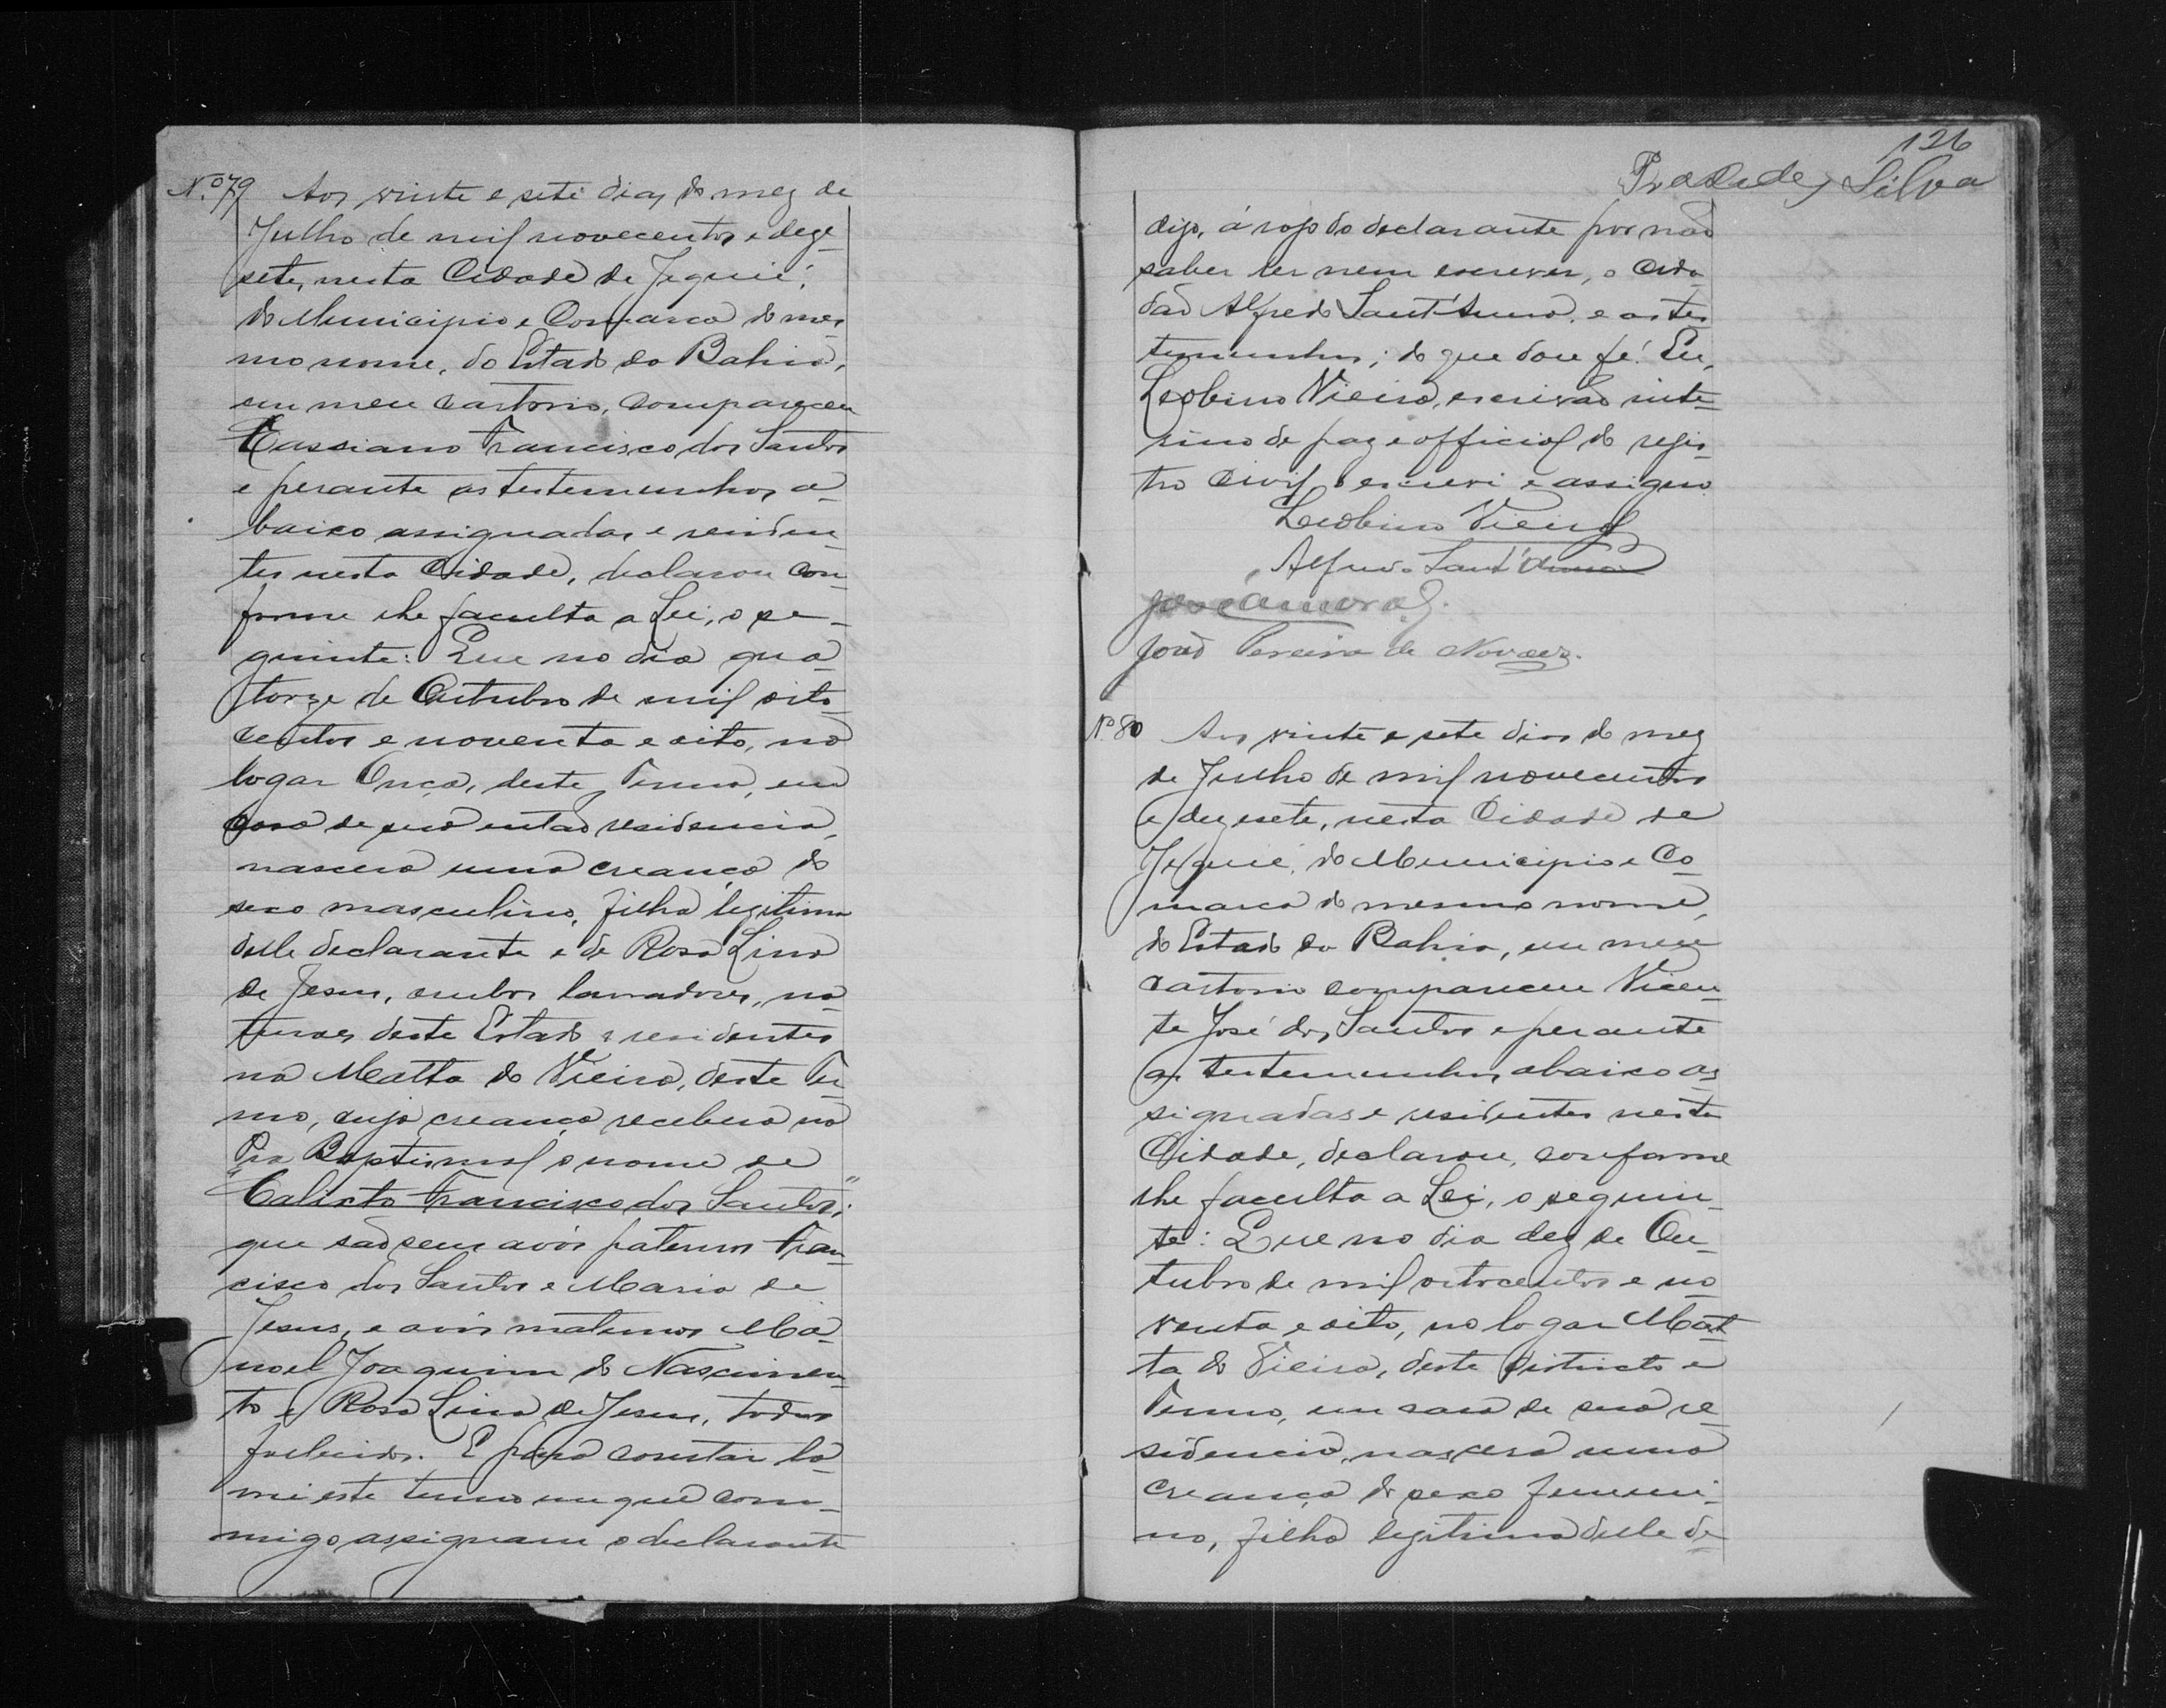 Nº 79 Aos vinte e sete dias do mez de
Julho de mil novecentos e deze-
sete, nesta Cidade de Jequié,
do Municipio e Comarca do mes-
mo nome, do Estado da Bahia,
em meu cartorio, compareceu
Cassiano Francisco dos Santos
e perante as testemunhas a-
baixo assignadas e residen-
tes nesta Cidade, declarou con-
forme lhe faculta a Lei, o se-
guinte: Que no dia qua-
torze de Outubro de mil oito-
centos e noventa e oito, no
logar Onça, deste Termo, em
casa de sua então residencia,
nascera uma creança do
sexo masculino, filha legitima
delle declarante e de Rosa Lina
de Jesus, ambos lavradores, na-
turaes deste Estado e residentes
na Matta do Vieira, deste Ter-
mo, cuja creança recebera na
Pia Baptismal o nome de
"Calixto Francisco dos Santos";
que são seus avós paternos Fran-
cisco dos Santos e Maria de
Jesus, e avós maternos Ma-
noel Joaquim do Nascimen-
to e Rosa Lina de Jesus, todos
fallecidos. E para constar la-
vrei este termo em que com-
migo assignam o declarante
126
Silva
digo, á rogo do declarante por não
saber ler nem escrever, o Cida-
dão Alfredo Sant'Anna, e as tes-
temunhas; do que dou fé. Eu,
Leobino Vieira, escrivão inte-
rino de paz e official do regis-
tro Civil, o escrevi e assigno.
Leobino Vieira
Alfredo Sant'Anna
José Amaral.
João Pereira de Novaes.
Nº 80 Aos vinte e sete dias do mez
de Julho de mil novecentos
e dezesete, nesta Cidade de
Jequié, do Municipio e Co-
marca do mesmo nome,
do Estado da Bahia, em meu
cartorio compareceu Vicen-
te José dos Santos e perante
as testemunhas abaixo as-
signadas e residentes nesta
Cidade, declarou, conforme
lhe faculta a Lei, o seguin-
te: Que no dia dez de Ou-
tubro de mil oitocentos e no-
venta e oito, no logar Mat-
ta do Vieira, deste Districto e
Termo, em casa de sua re-
sidencia, nascera uma
creança do sexo femini-
no, filha legitima delle de-